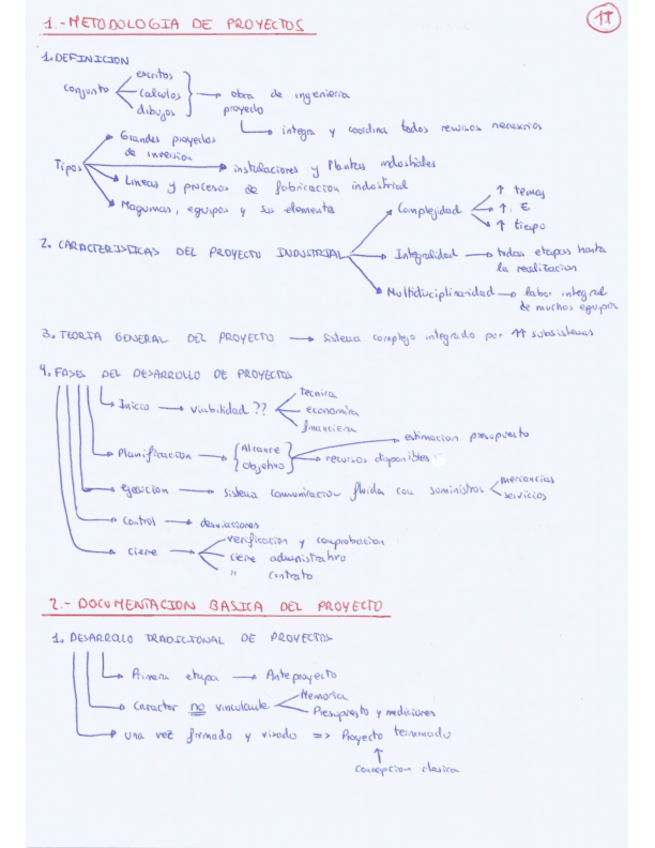 1.- METODOLOGIA DE PROYECTOS
1T
1. DEFINICION
conjunto
escritos
calculos
dibujos
obra de ingenieria
proyecto
integra y coordina todos recursos necesarios
Tipos
Grandes proyectos
de inversion
instalaciones y Plantas industriales
Lineas y procesos de fabricacion industrial
Maquinas, equipos y sus elementos
2. CARACTERISTICAS DEL PROYECTO INDUSTRIAL
Complejidad
↑ temas
↑ €
↑ tiempo
Integralidad → todas etapas hasta
la realizacion
Multidisciplinaridad → labor integral
de muchos equipos
3. TEORIA GENERAL DEL PROYECTO → Sistema complejo integrado por ↑↑ subsistemas
4. FASES DEL DESARROLLO DE PROYECTOS
Inicio → viabilidad ??
tecnica
economica
financiera
Planificacion →
Alcance
Objetivo
estimacion presupuesto
recursos disponibles
Ejecucion → sistema comunicacion fluida con suministros
mercancias
servicios
Control → desviaciones
Cierre →
verificacion y comprobacion
cierre administrativo
" contrato
2.- DOCUMENTACION BASICA DEL PROYECTO
1. DESARROLLO TRADICIONAL DE PROYECTOS
Primera etapa → Anteproyecto
Caracter no vinculante
Memoria
Presupuesto y mediciones
una vez firmado y visado => Proyecto terminado
↑
Concepcion clasica